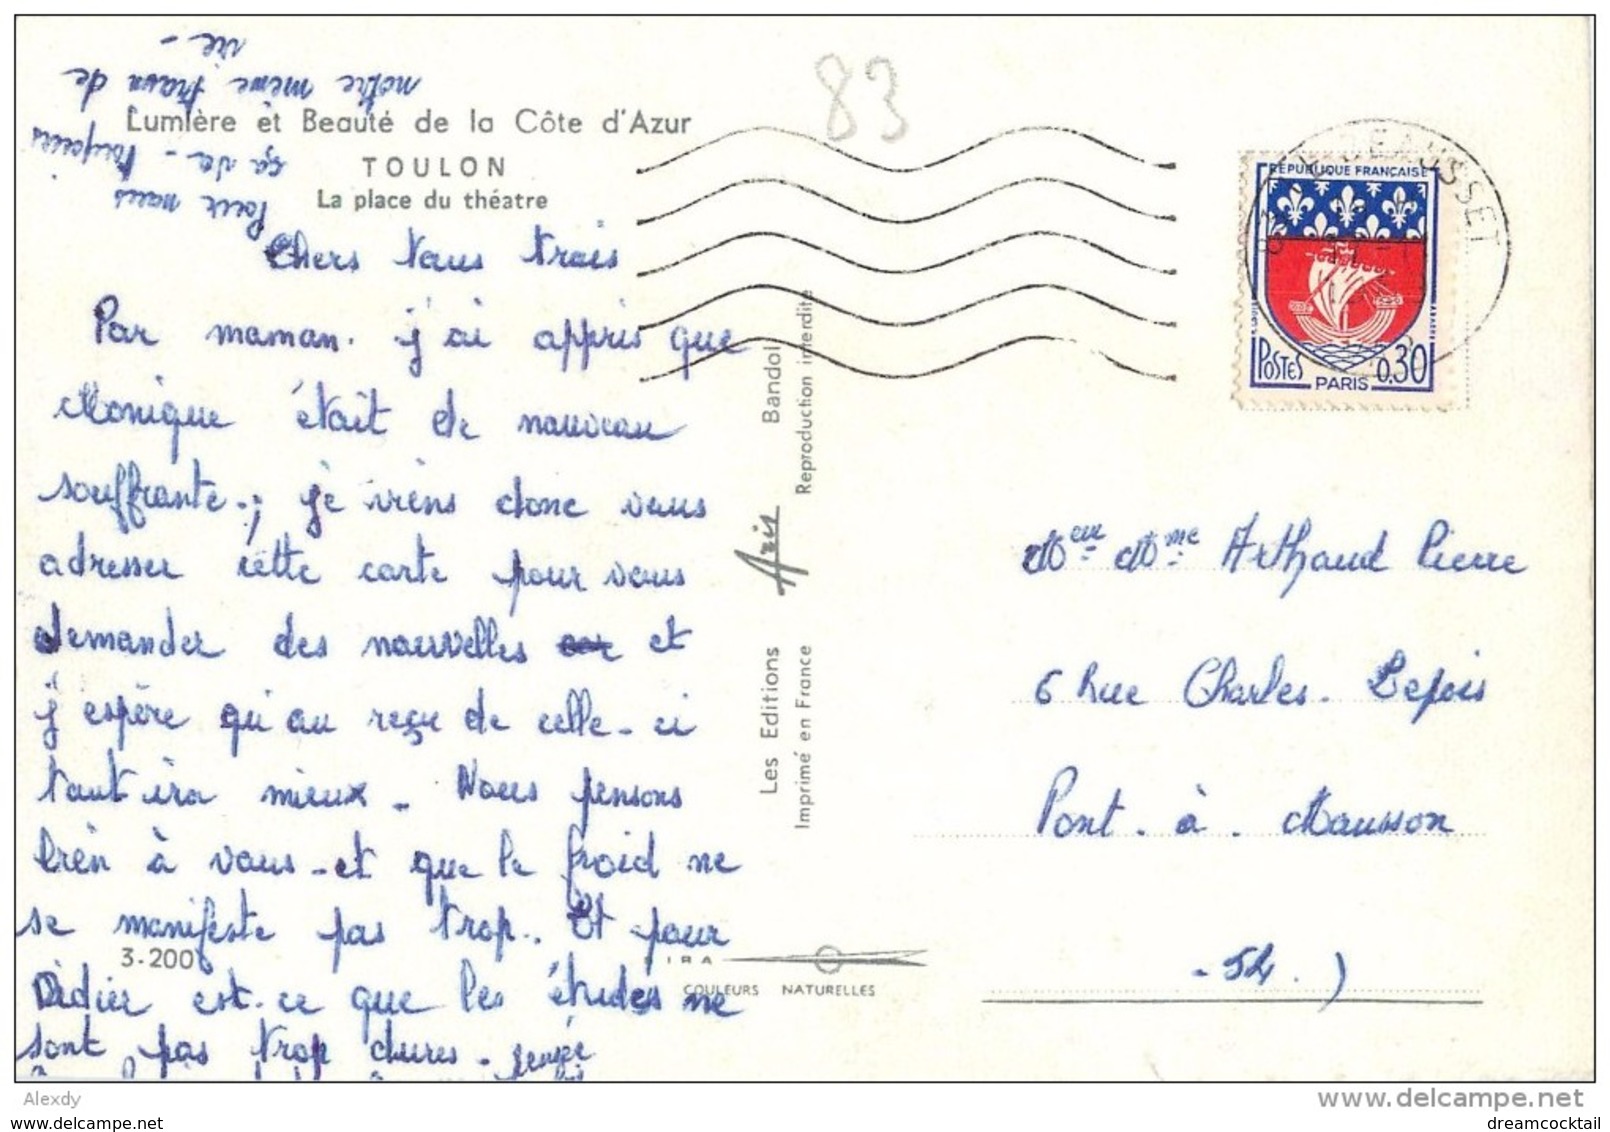 83
Lumière et Beauté de la Côte d'Azur
TOULON
La place du théatre
Chers Vous trois
Par maman. j'ai appris que
Monique était de nouveau
souffrante.; je viens donc vous
adresser cette carte pour vous
demander des nouvelles et
j'espère qu'au reçu de celle-ci
tout ira mieux - Nous pensons
bien à vous - et que le froid ne
se manifeste pas trop. Et pour
Didier est-ce que les études ne
sont pas trop dures -
Pour nous
ça va - Toujours
notre même train de
vie -
3-200
IRA
COULEURS NATURELLES
Les Editions Aris Bandol
Imprimé en France Reproduction interdite
LE BEAUSSET
RÉPUBLIQUE FRANÇAISE
POSTES PARIS 0,30
Meur Mme Arthaud Pierre
6 Rue Charles. Lepois
Pont. à. Mousson
- 54. )
Alexdy
www.delcampe.net
www.delcampe.net
dreamcocktail